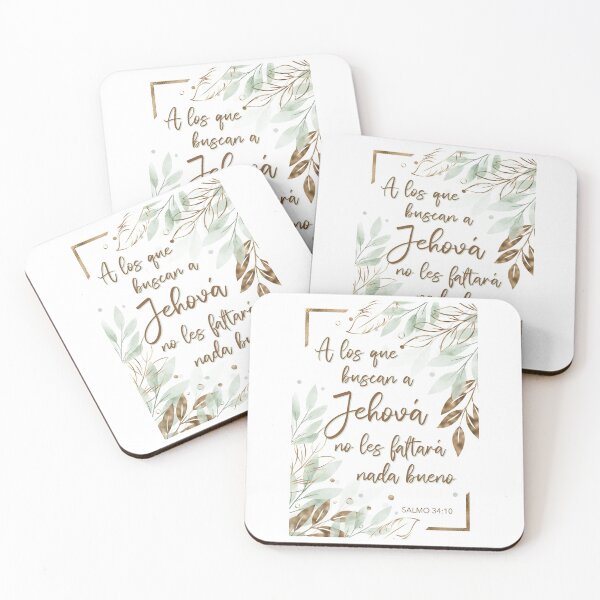 A los que
buscan a
Jehová
A los que
buscan a
Jehová
no les faltará
A los que
buscan a
Jehová
no les faltará
nada
A los que
buscan a
Jehová
no les faltará
nada bueno
SALMO 34:10